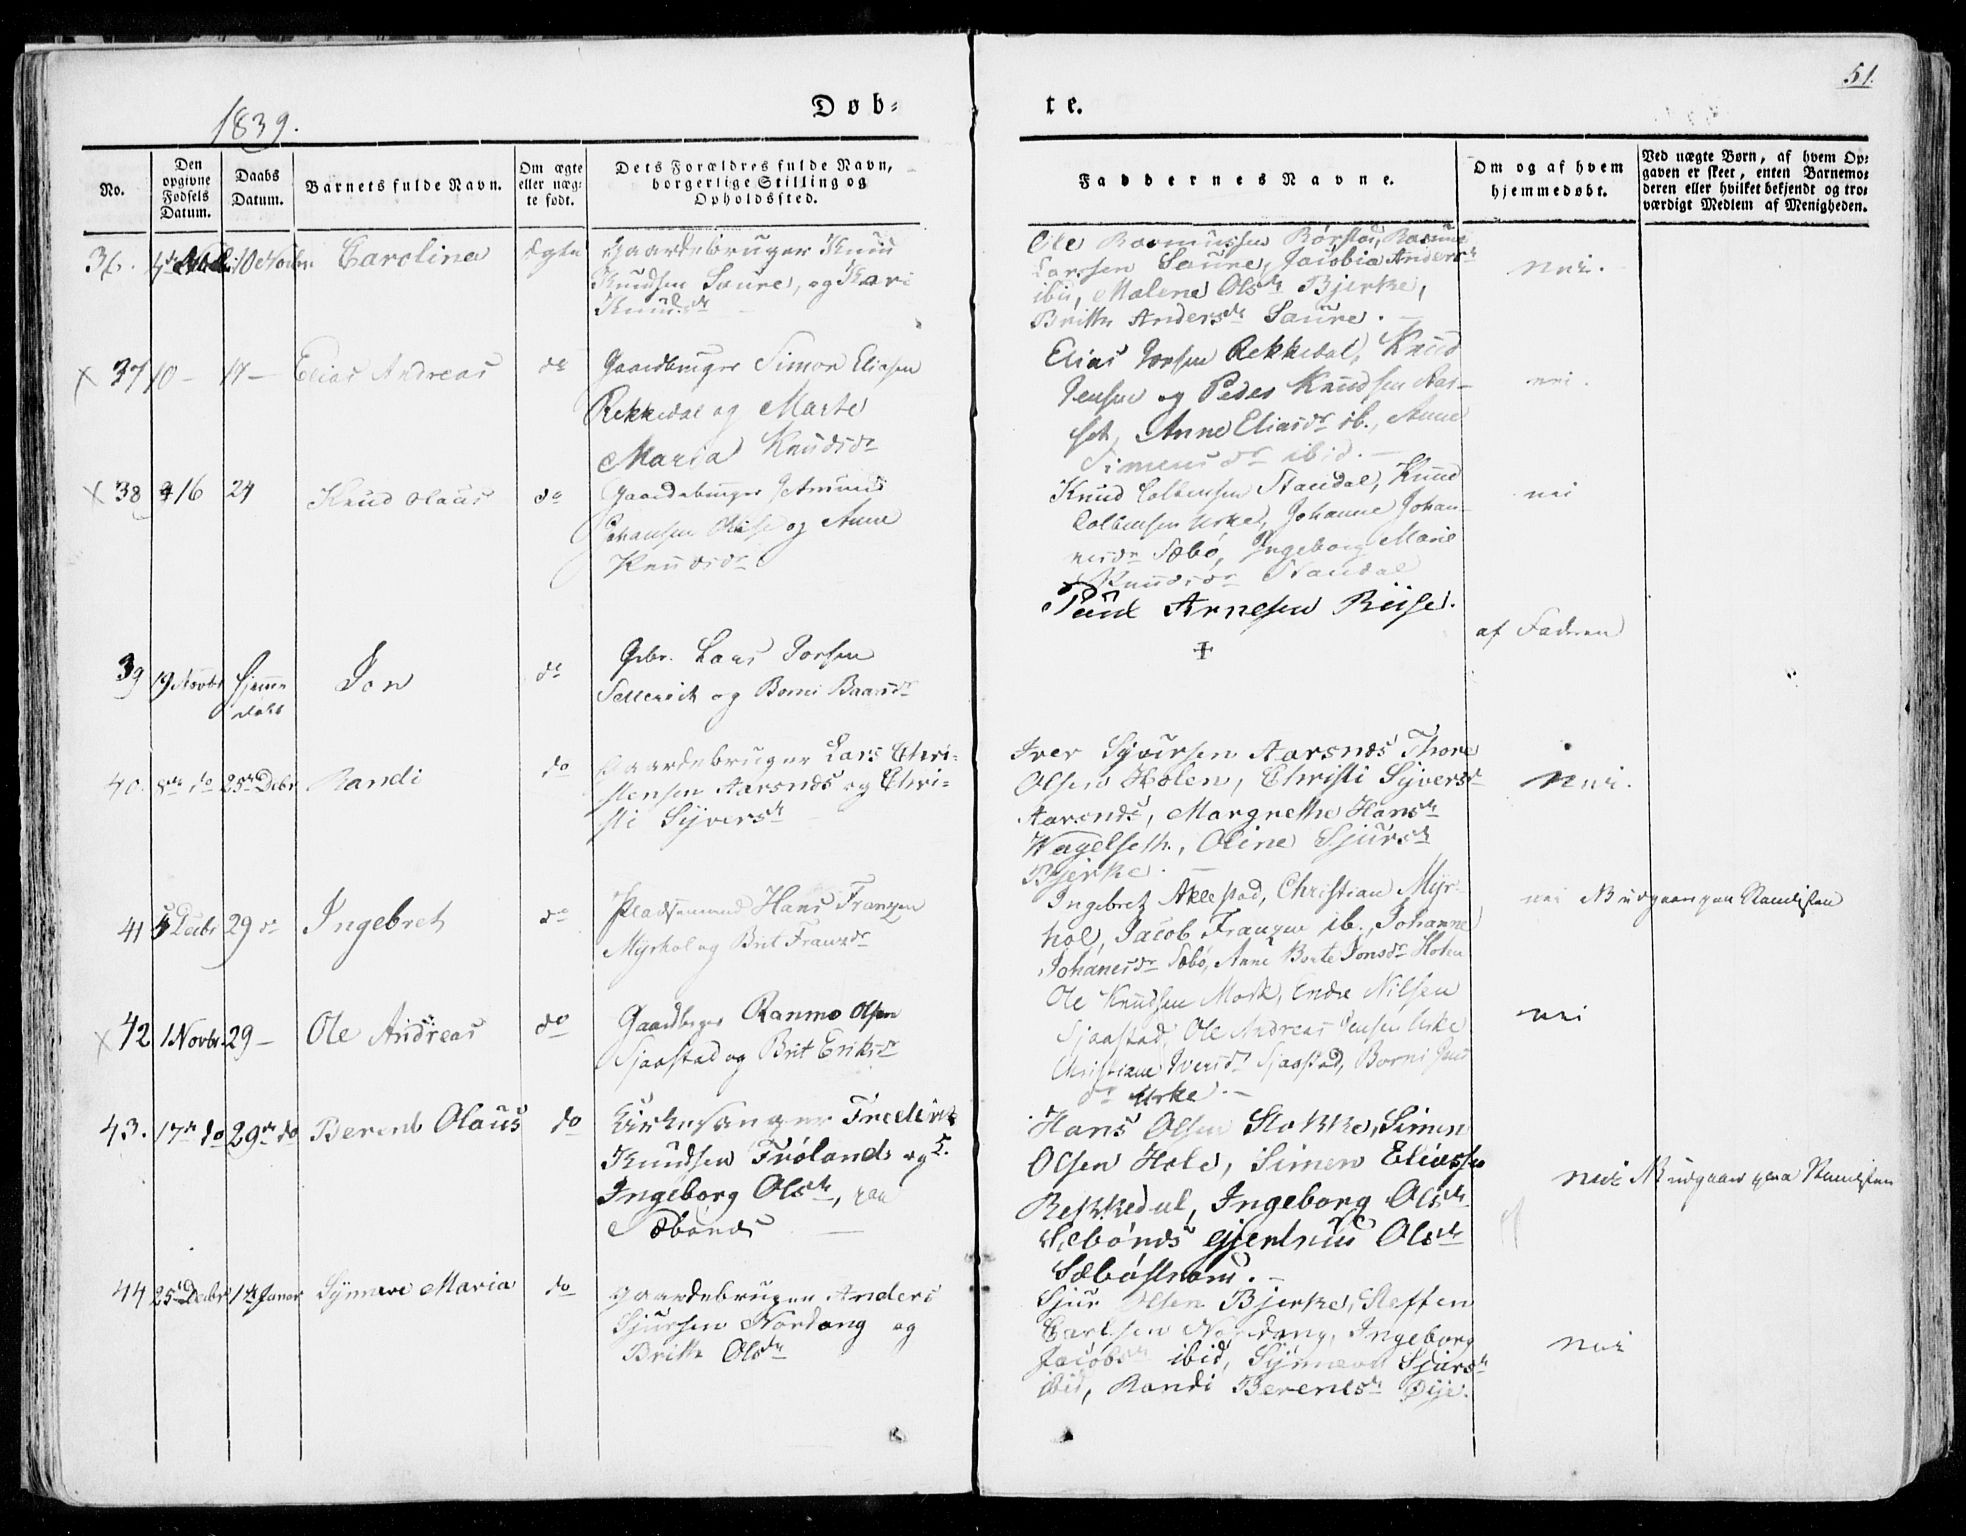 51.
1839.
Døb-
te.
No.
Den opgivne Fødsels Datum.
Daabs Datum.
Barnets fulde Navn.
Om ægte eller næg-
te født.
Dets Forældres fulde Navn,
borgerlige Stilling og
Opholdssted.
Faddernes Navne.
Om og af hvem
hjemmedøbt.
Ved uægte Børn, af hvem Op-
gaven er skeet, enten Barnemo-
deren eller hvilket bekjendt og tro-
værdigt Medlem af Menigheden.
36. 10 Novbr. Carolina ægte Gaardebruger Knud
Knudsen Saure, og Kari
Knudsdr
Ole Rasmussen Rørstad, Rasmus
Larssen Saure, Jacobia Andersdr
ibid, Malene Olsdr Bjerke,
Brithe Andersdr Saure. -
nei.
x 37 10 - 17 - Elias Andreas do Gaardbruger Simon Eliasen
Rekkedal og Marte
Maria Knudsdr
Elias Rekkedal, Knud
Jensen og Peder Knudsen Aar-
set, Anne Eliasdr ib., Anne
Simensdr ibid. -
nei.
x 38 16 24 Knud Olaus do Gaardebruger
Johansen og Anne
Knudsdr
Knud Colbensen Standal, Knud
Colbensen Urke, Johanne Johan-
nesdr Sæbø, Ingeborg Marie
Knudsdr Standal
Paul Arnesen Riise.
nei
39 19 Novbr Hjemme
døbt Jon do Gbr. Lars
Sellereit og Borni Baarsdr
+
af Faderen
40. 8de do 25de Debr Randi do Gaardebruger Lars Chri-
stensen Aarsnæs og Chri-
sti Syversdr
Iver Syversen Aarsnæs Thore
Olsen Holen, Christi Syversdr
Aarsnæs, Margrethe Hansdr
Wagelseth, Oline Sjursdr
Bjerke. -
nei.
41 5 Decbr 29 do Ingebret do Pladsemand Hans Franzen
Myrhol og Brit Franzdr
Ingebret Aklestad, Christian Myr-
hol, Jacob Franzen ib., Johanne
Johanesdr Sæbø, Anne Berte Jonsdr Holen
nei
x 42 1 Novbr. 29 - Ole Andreas do Gaardbrger Rasmus Olsen
Sjaastad og Brit Eriksdr
Ole Knudsen Mork, Endre Nilsen
Sjaastad, Ole Andreas Jensen Urke
Christiane Iversdr Sjaastad, Borni Jens
dr Urke. -
nei
43. 17de do 29de do Berent Olaus do Kirkesanger Frederik
Knudsen Frøland og
Ingeborg Olsdr, paa
Sæbønes
Hans Olsen Stokke, Simen
Olsen Hole, Simen Eliassen
Rekkedal, Ingeborg Olsdr
Sæbønes Gjertrud Olsdr
Sæbøstrand. -
nei
44 25de Decbr 1ste Januar Synneve Maria do Gaardebruger Anders
Sjursen Nordang og
Brithe Olsdr
Sjur Olsen Bjerke, Steffen
Carlsen Nordang, Ingeborg
Jacobsdr ibid, Synneve Sjursdr
ibid, Randi Berentsdr Øije.
nei